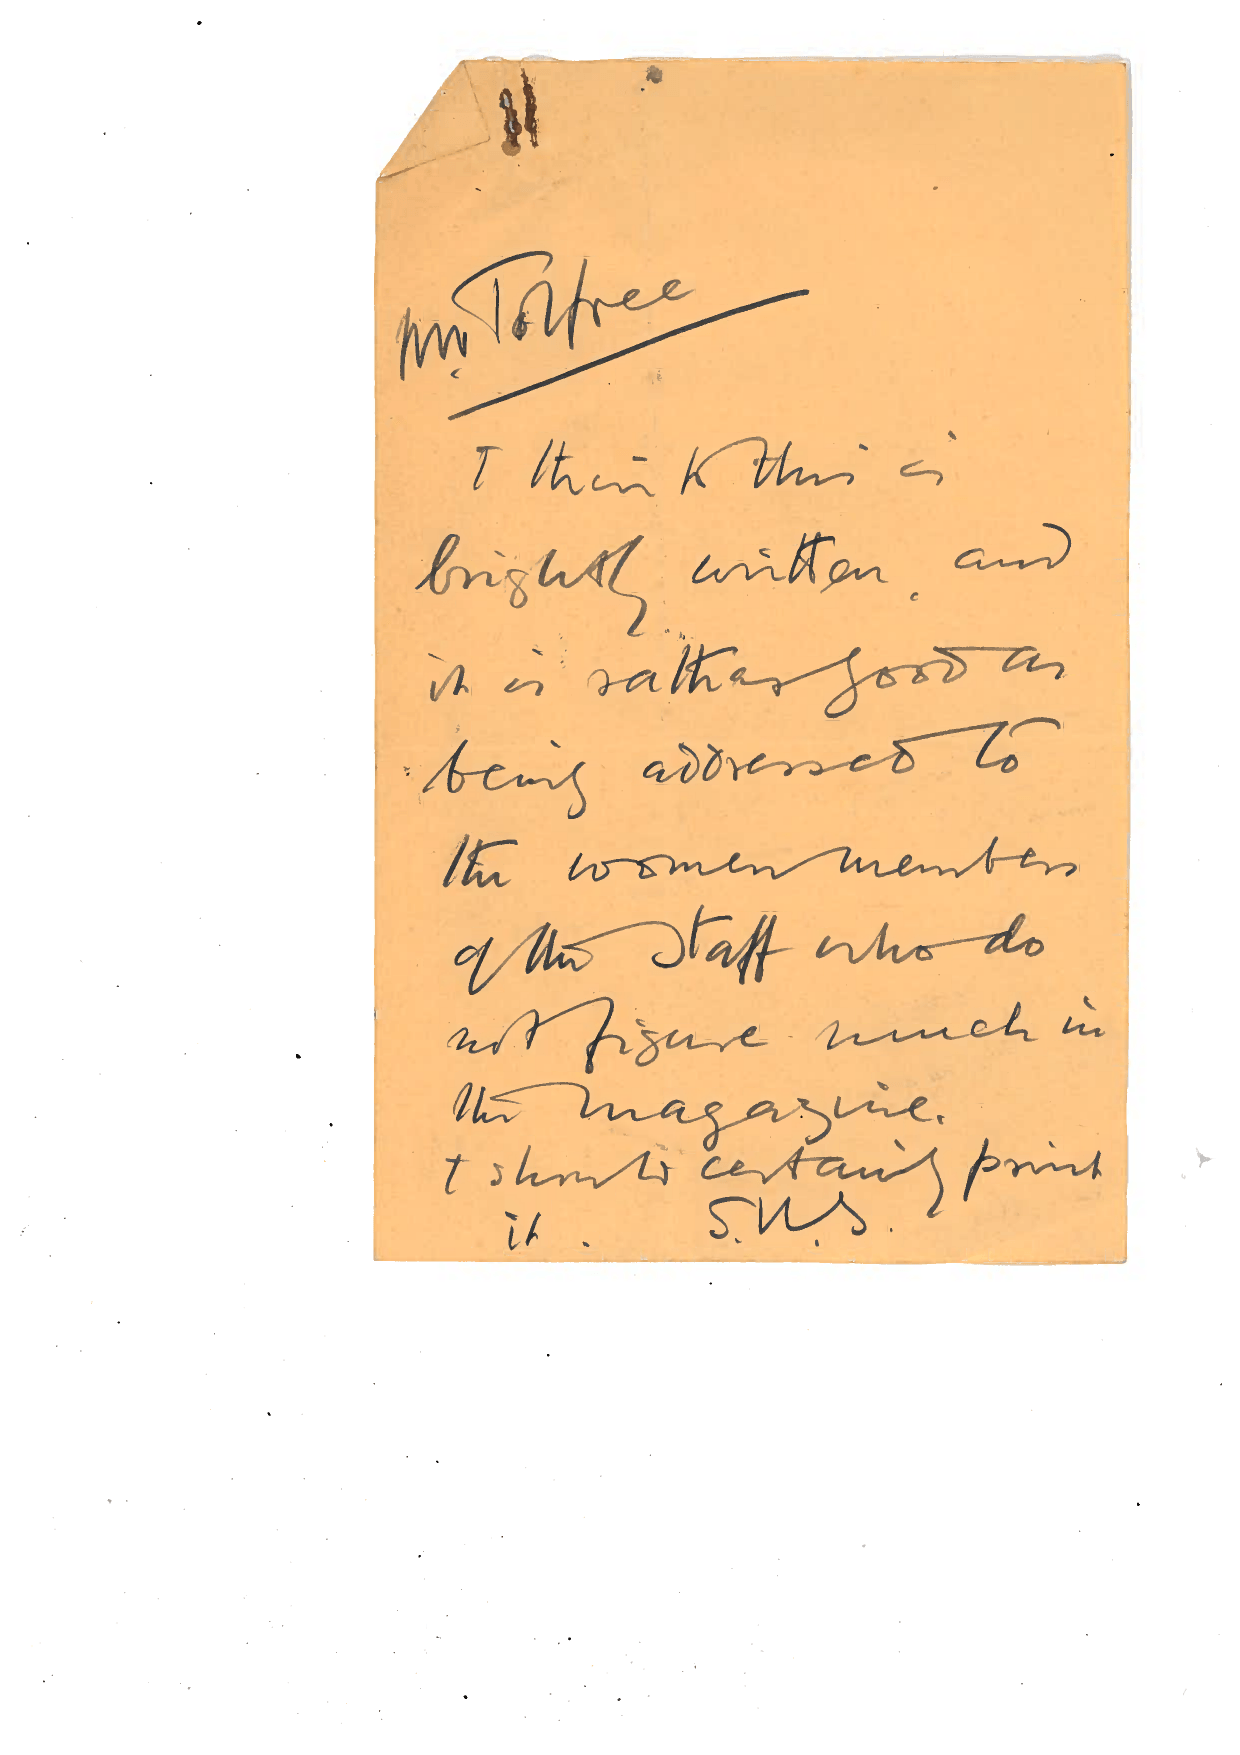 Mr. Tolfree
I think this is
brightly written, and
it is rather good as
being addressed to
the women members
of the Staff who do
not figure much in
the magazine.
I should certainly print
it. S.W.S.